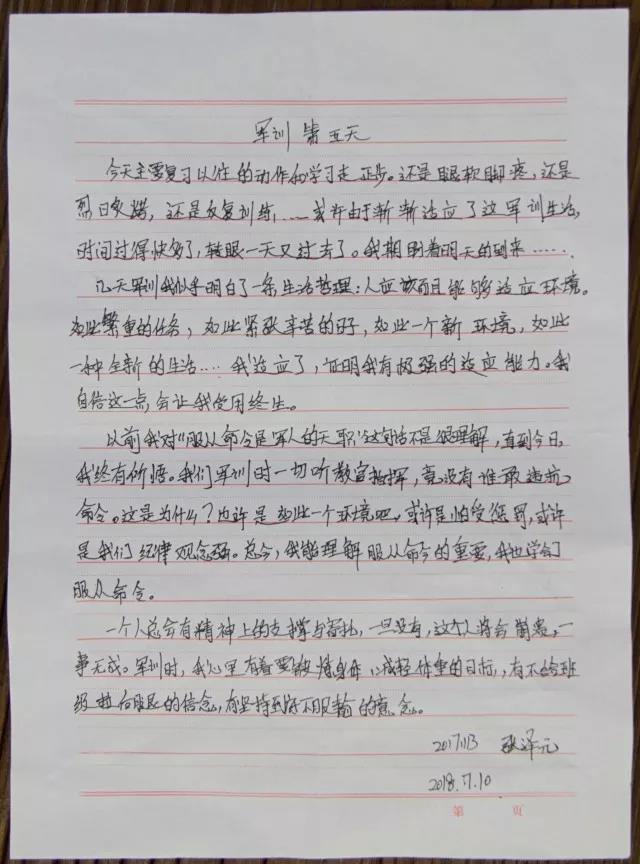 军训第五天
今天主要复习以往的动作和学习走正步。还是眼软脚疼,还是
烈日炎炎,还是反复训练,……或许由于渐渐适应了这军训生活,
时间过得快多了,转眼一天又过去了。我期盼着明天的到来……
几天军训我似乎明白了一条生活哲理:人应该而且能够适应环境。
如此繁重的任务,如此紧张辛苦的日子,如此一个新环境,如此
一种全新的生活……我适应了,证明我有极强的适应能力。我
自信这一点,会让我受用终生。
以前我对“服从命令是军人的天职”这句话不是很理解,直到今日,
我终有所悟。我们军训时一切听教官指挥,竟没有谁敢违抗
命令。这是为什么?也许是如此一个环境吧,或许是怕受惩罚,或许
是我们纪律观念强。总今,我能理解服从命令的重要,我也学会了
服从命令。
一个人总会有精神上的支撑与寄托,一旦没有,这个人将会崩溃,一
事无成。军训时,我心里有着要锻炼身体,减轻体重的目标,有不给班
级拉后腿的信念,有坚持到底不服输的意念。
2017113 张泽元
2018.7.10
第 页